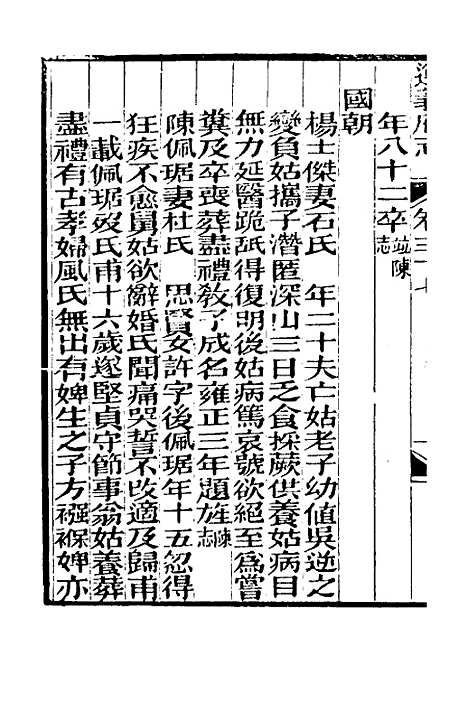 遵義府志 卷三十七
年八十二卒並陳志
國朝
楊士傑妻石氏 年二十夫亡姑老子幼值吳逆之
變負姑攜子潛匿深山三日乏食採蕨供養姑病目
無力延醫跪舐得復明後姑病篤哀號欲絕至爲嘗
糞及卒喪葬盡禮敎子成名雍正三年題旌陳志
陳佩琚妻杜氏 思賢女許字後佩琚年十五忽得
狂疾不愈舅姑欲辭婚氏聞痛哭誓不改適及歸甫
一載佩琚歿氏甫十六歲遂堅貞守節事翁姑養葬
盡禮有古孝婦風氏無出有婢生之子方襁褓婢亦